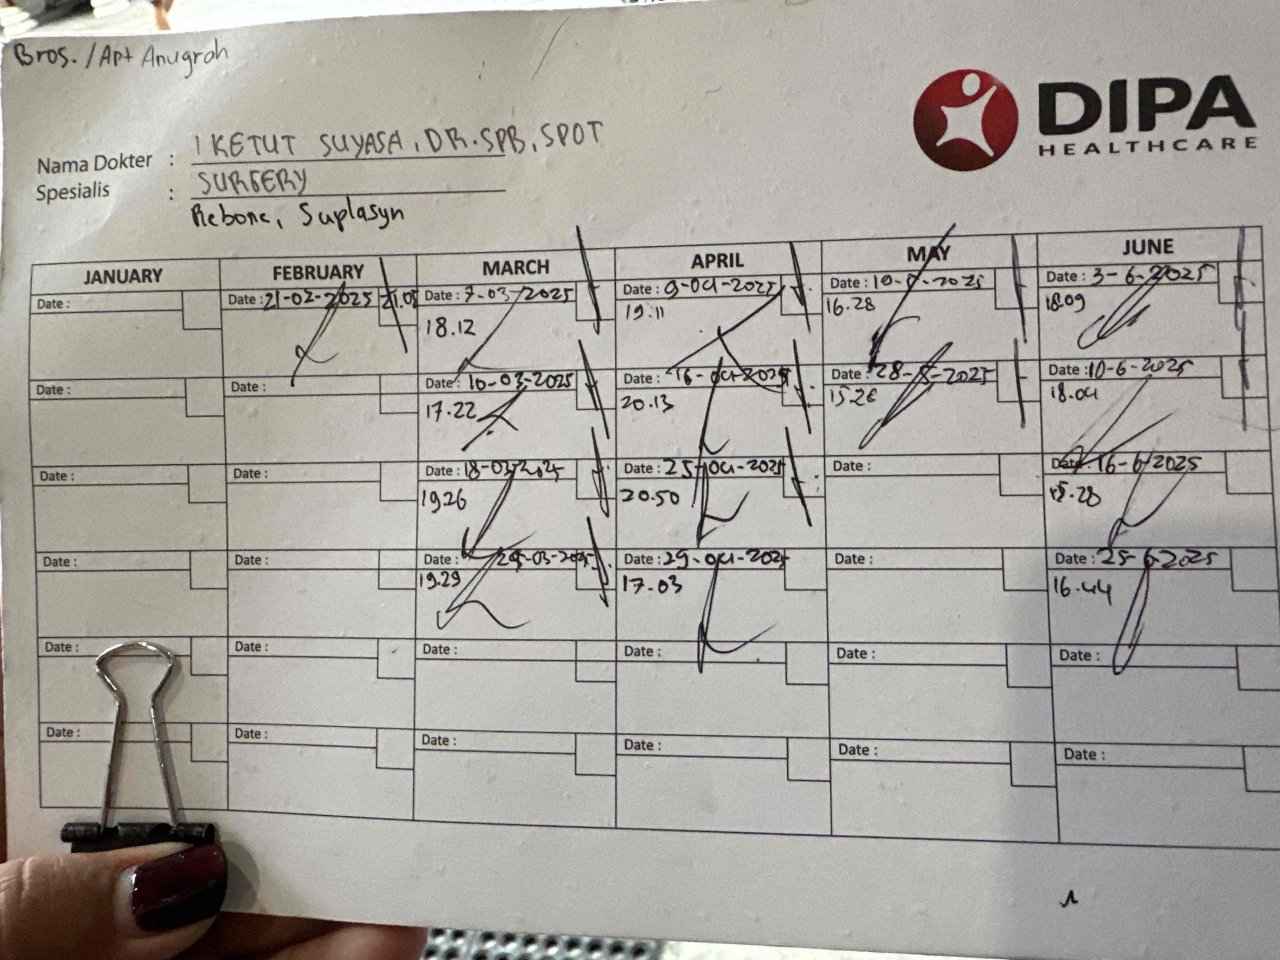 Bros. / Apt Anugrah
DIPA
HEALTHCARE
Nama Dokter : I KETUT SUYASA, DR. SPB, SPOT
Spesialis : SURGERY
Rebone, Suplasyn
JANUARY FEBRUARY MARCH APRIL MAY JUNE
Date : Date : 21-02-2025 Date : 7-03-2025 Date : 9-04-2025 Date : 2025 Date : 3-6-2025
18.12 19.11 16.28 18.09
Date : Date : Date : 10-03-2025 Date : 16-04-2025 Date : 28-5-2025 Date : 10-6-2025
17.22 20.13 18.04
Date : Date : Date : 18-03-2025 Date : 25-04-2025 Date : Date : 16-6-2025
19.26 20.50
Date : Date : Date : 03-2025 Date : 29-04-2025 Date : Date : 25-6-2025
19.29 17.03 16.44
Date : Date : Date : Date : Date : Date :
Date : Date : Date : Date : Date : Date :